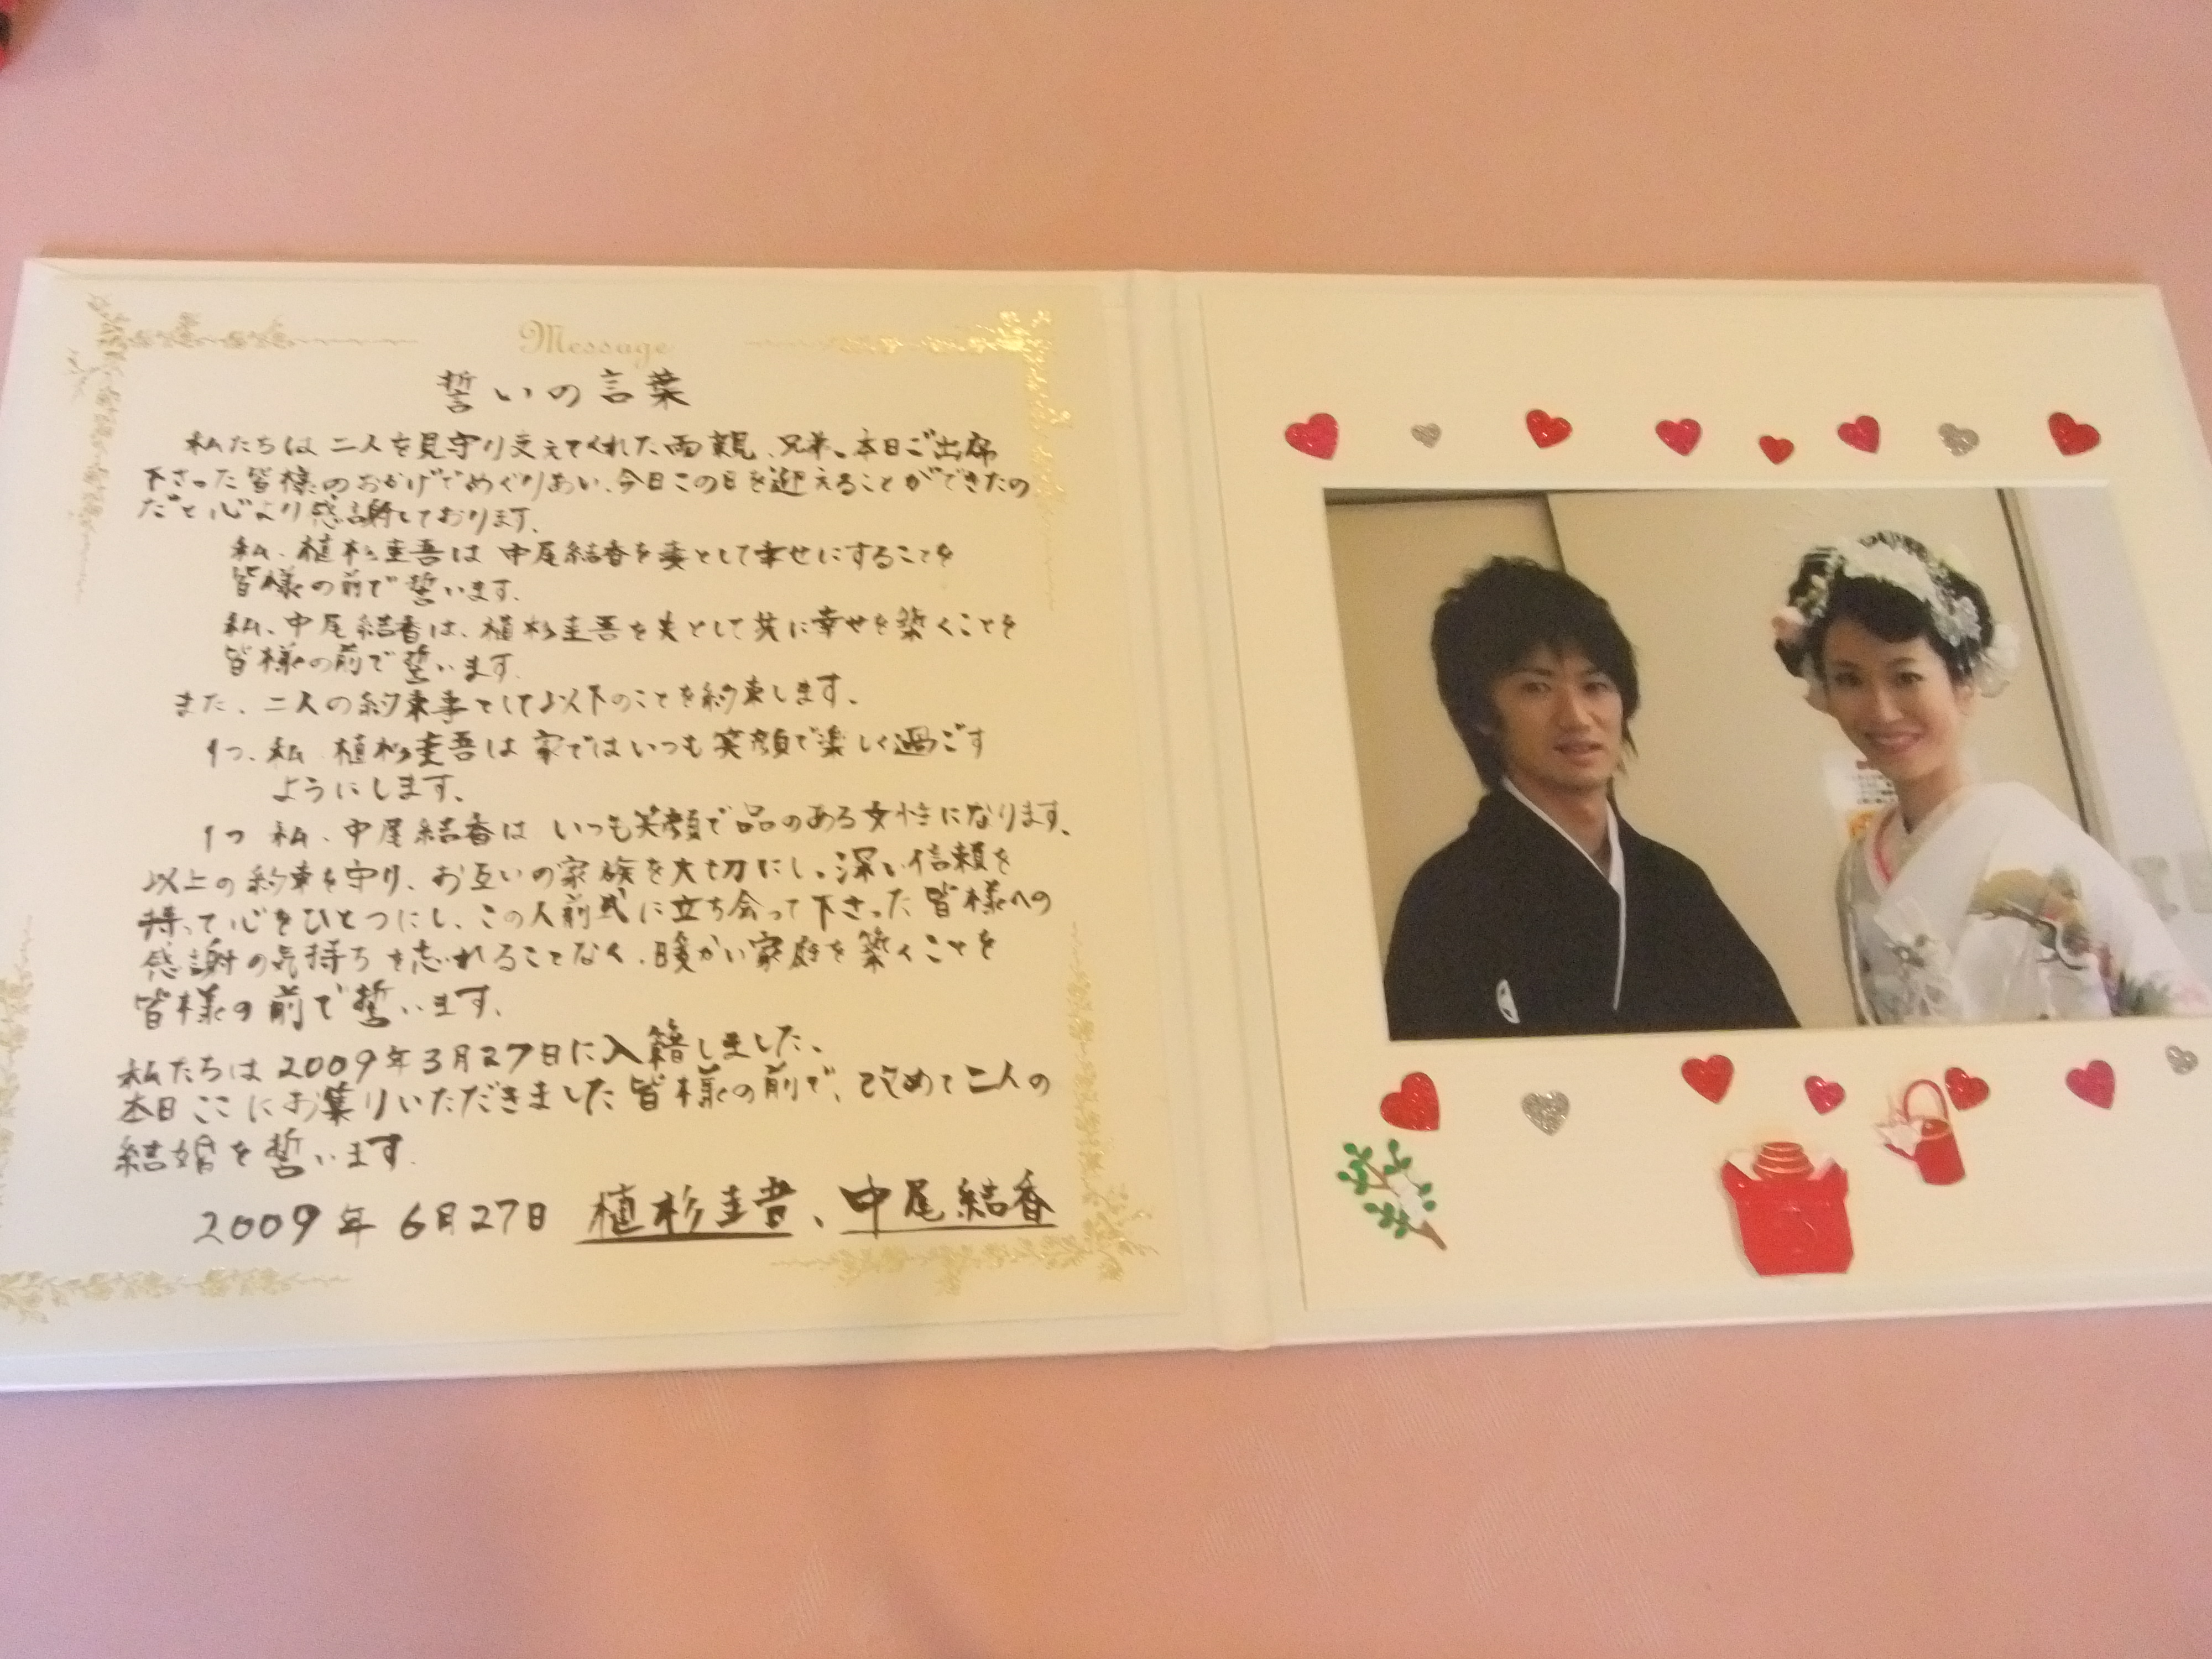 Message
誓いの言葉
私たちは二人を見守り支えてくれた両親、兄弟、本日ご出席
下さった皆様のおかげでめぐりあい、今日この日を迎えることができたの
だと心より感謝しております。
私、植杉圭吾は 中尾結香を妻として幸せにすることを
皆様の前で誓います。
私、中尾結香は、植杉圭吾を夫として共に幸せを築くことを
皆様の前で誓います。
また、二人の約束事として以下のことを約束します。
1つ、私 植杉圭吾は 家ではいつも笑顔で楽しく過ごす
ようにします。
1つ 私、中尾結香は いつも笑顔で品のある女性になります。
以上の約束を守り、お互いの家族を大切にし、深い信頼を
持って心をひとつにし、この人前式に立ち会って下さった皆様への
感謝の気持ちを忘れることなく、暖かい家庭を築くことを
皆様の前で誓います。
私たちは2009年3月27日に入籍しました。
本日ここにお集りいただきました皆様の前で、改めて二人の
結婚を誓います。
2009年 6月27日 植杉圭吾、中尾結香